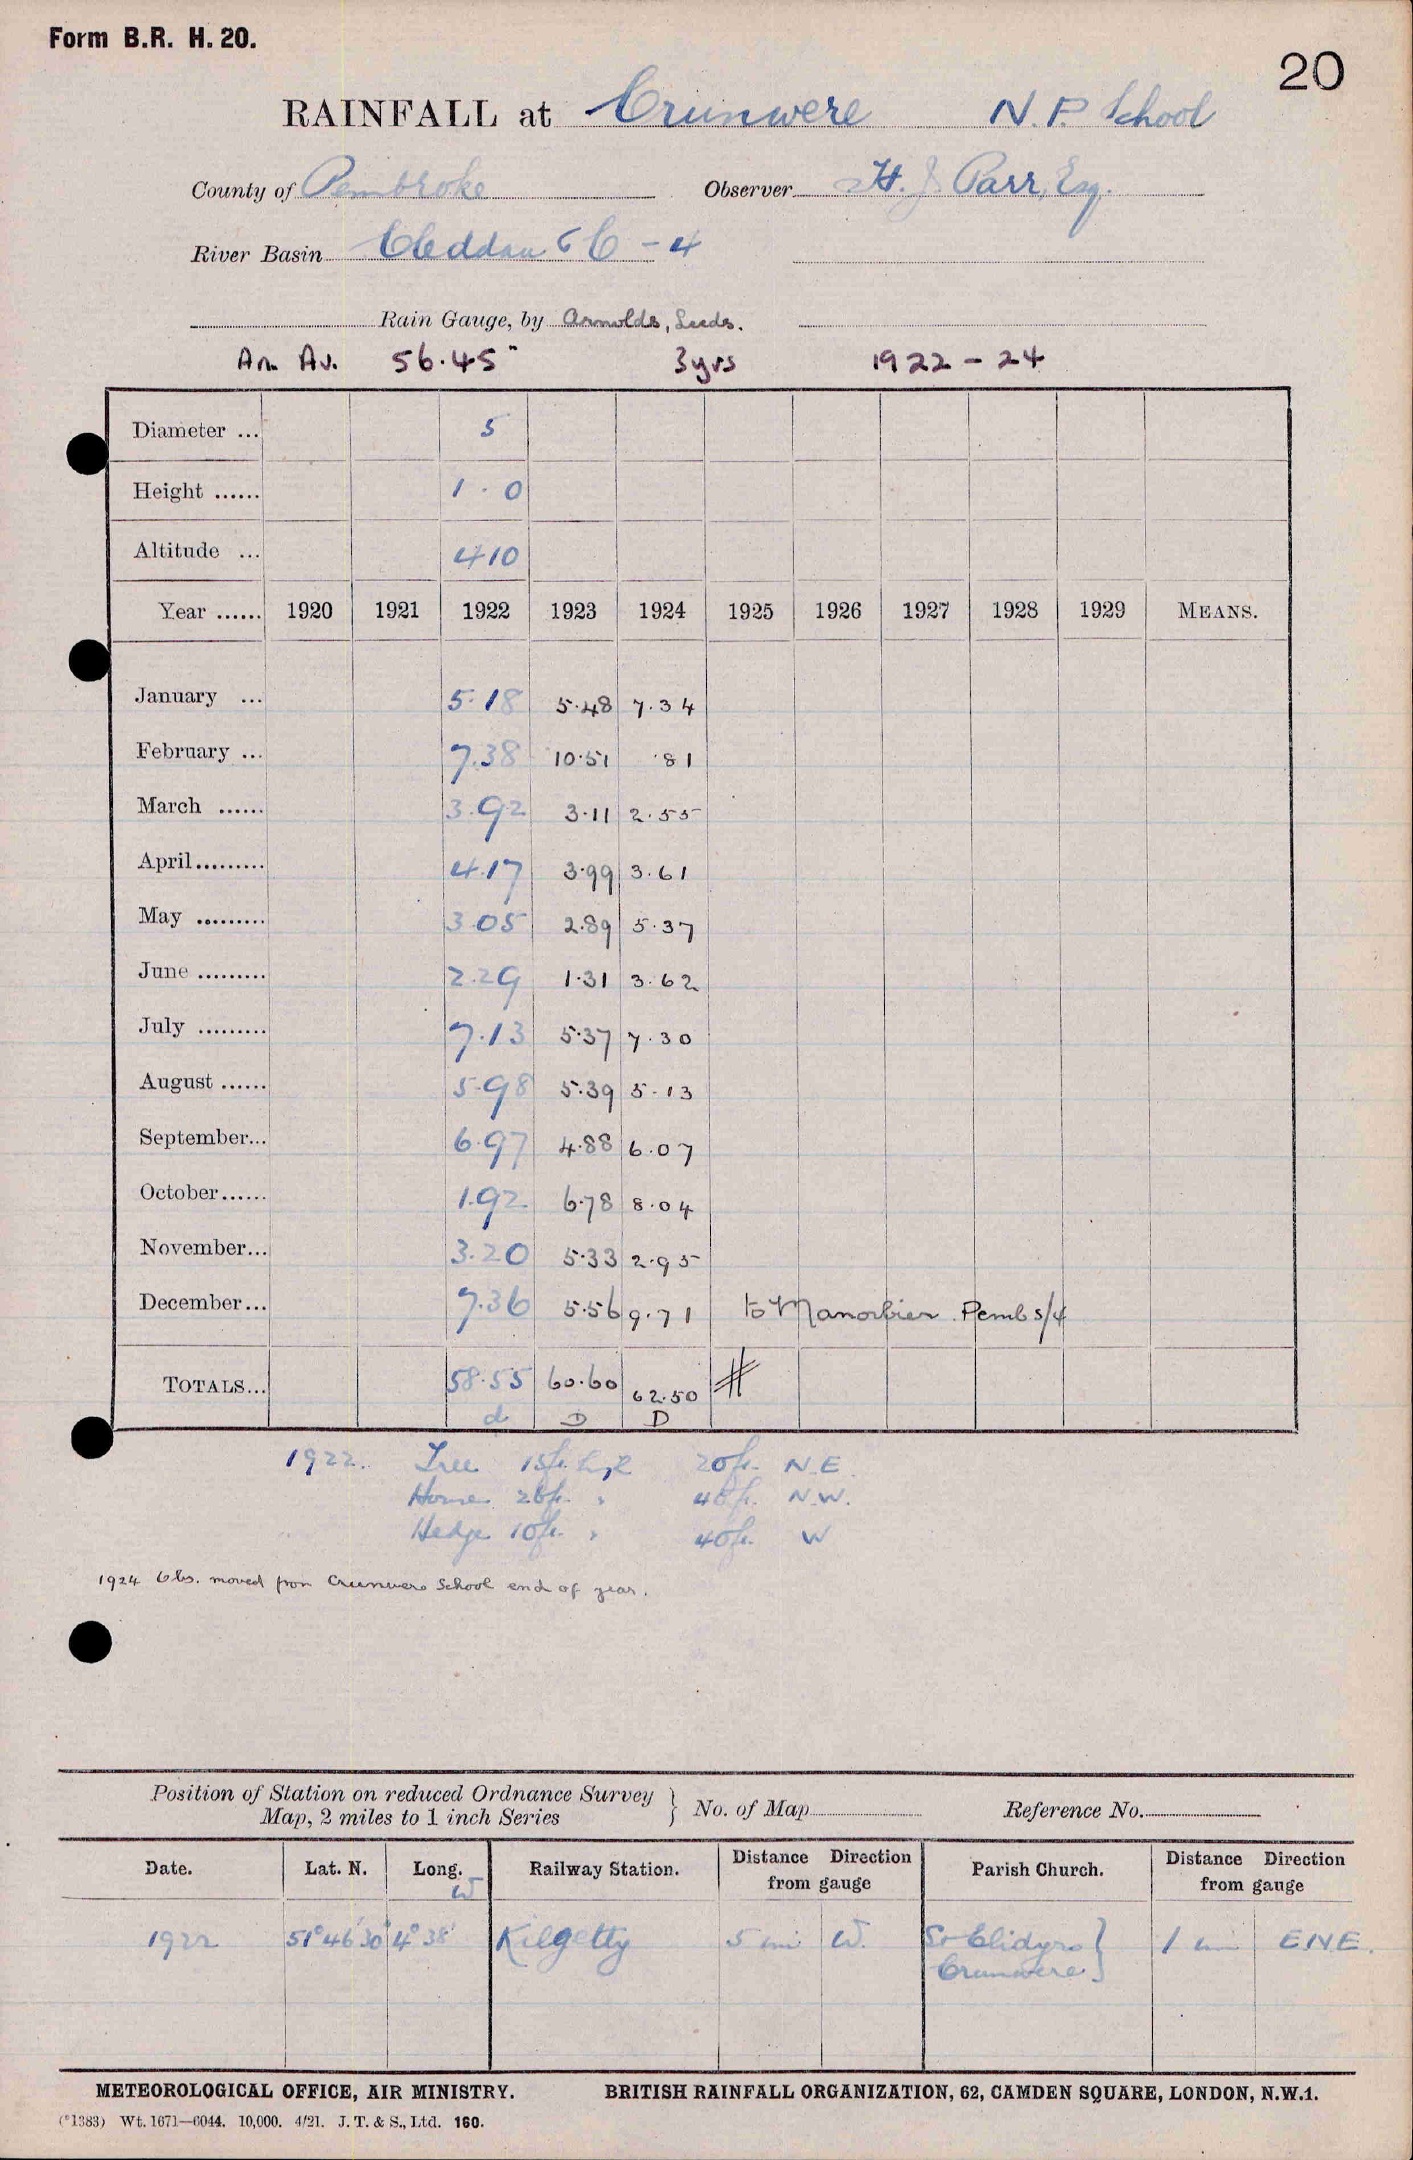 Form B.R. H. 20.
20
RAINFALL at Crunwere N.P. School
County of Pembroke Observer H. J. Parr, Esq.
River Basin Cleddau &C - 4
Rain Gauge, by Arnolds, Leeds.
An. Av. 56.45" 3yrs 1922 - 24
Diameter ... 5
Height ...... 1 . 0
Altitude ... 410
Year ...... 1920 1921 1922 1923 1924 1925 1926 1927 1928 1929 MEANS.
January ... 5.18 5.48 7.34
February ... 7.38 10.51 .81
March ...... 3.92 3.11 2.55
April......... 4.17 3.99 3.61
May ......... 3.05 2.89 5.37
June ......... 2.29 1.31 3.62
July ......... 7.13 5.37 7.30
August ...... 5.98 5.39 5.13
September... 6.97 4.88 6.07
October...... 1.92 6.78 8.04
November... 3.20 5.33 2.95
December... 7.36 5.56 9.71 to Manorbier Pemb s/4
TOTALS... 58.55 60.60 62.50 #
d D D
1922. Tree 15ft. high 20ft. N.E.
House 26ft. " 48ft. N.W.
Hedge 10ft. " 40ft. W
1924 Obs. moved from Crunwere School end of year.
Position of Station on reduced Ordnance Survey
Map, 2 miles to 1 inch Series } No. of Map Reference No.
Date. Lat. N. Long. W Railway Station. Distance Direction from gauge Parish Church. Distance Direction from gauge
1922 51° 46' 30" 4° 38' Kilgetty 5 mi W. St Elidyrs } 1 mi E.N.E.
Crunwere
METEOROLOGICAL OFFICE, AIR MINISTRY. BRITISH RAINFALL ORGANIZATION, 62, CAMDEN SQUARE, LONDON, N.W.1.
(*1383) Wt. 1671—6044. 10,000. 4/21. J. T. & S., Ltd. 160.